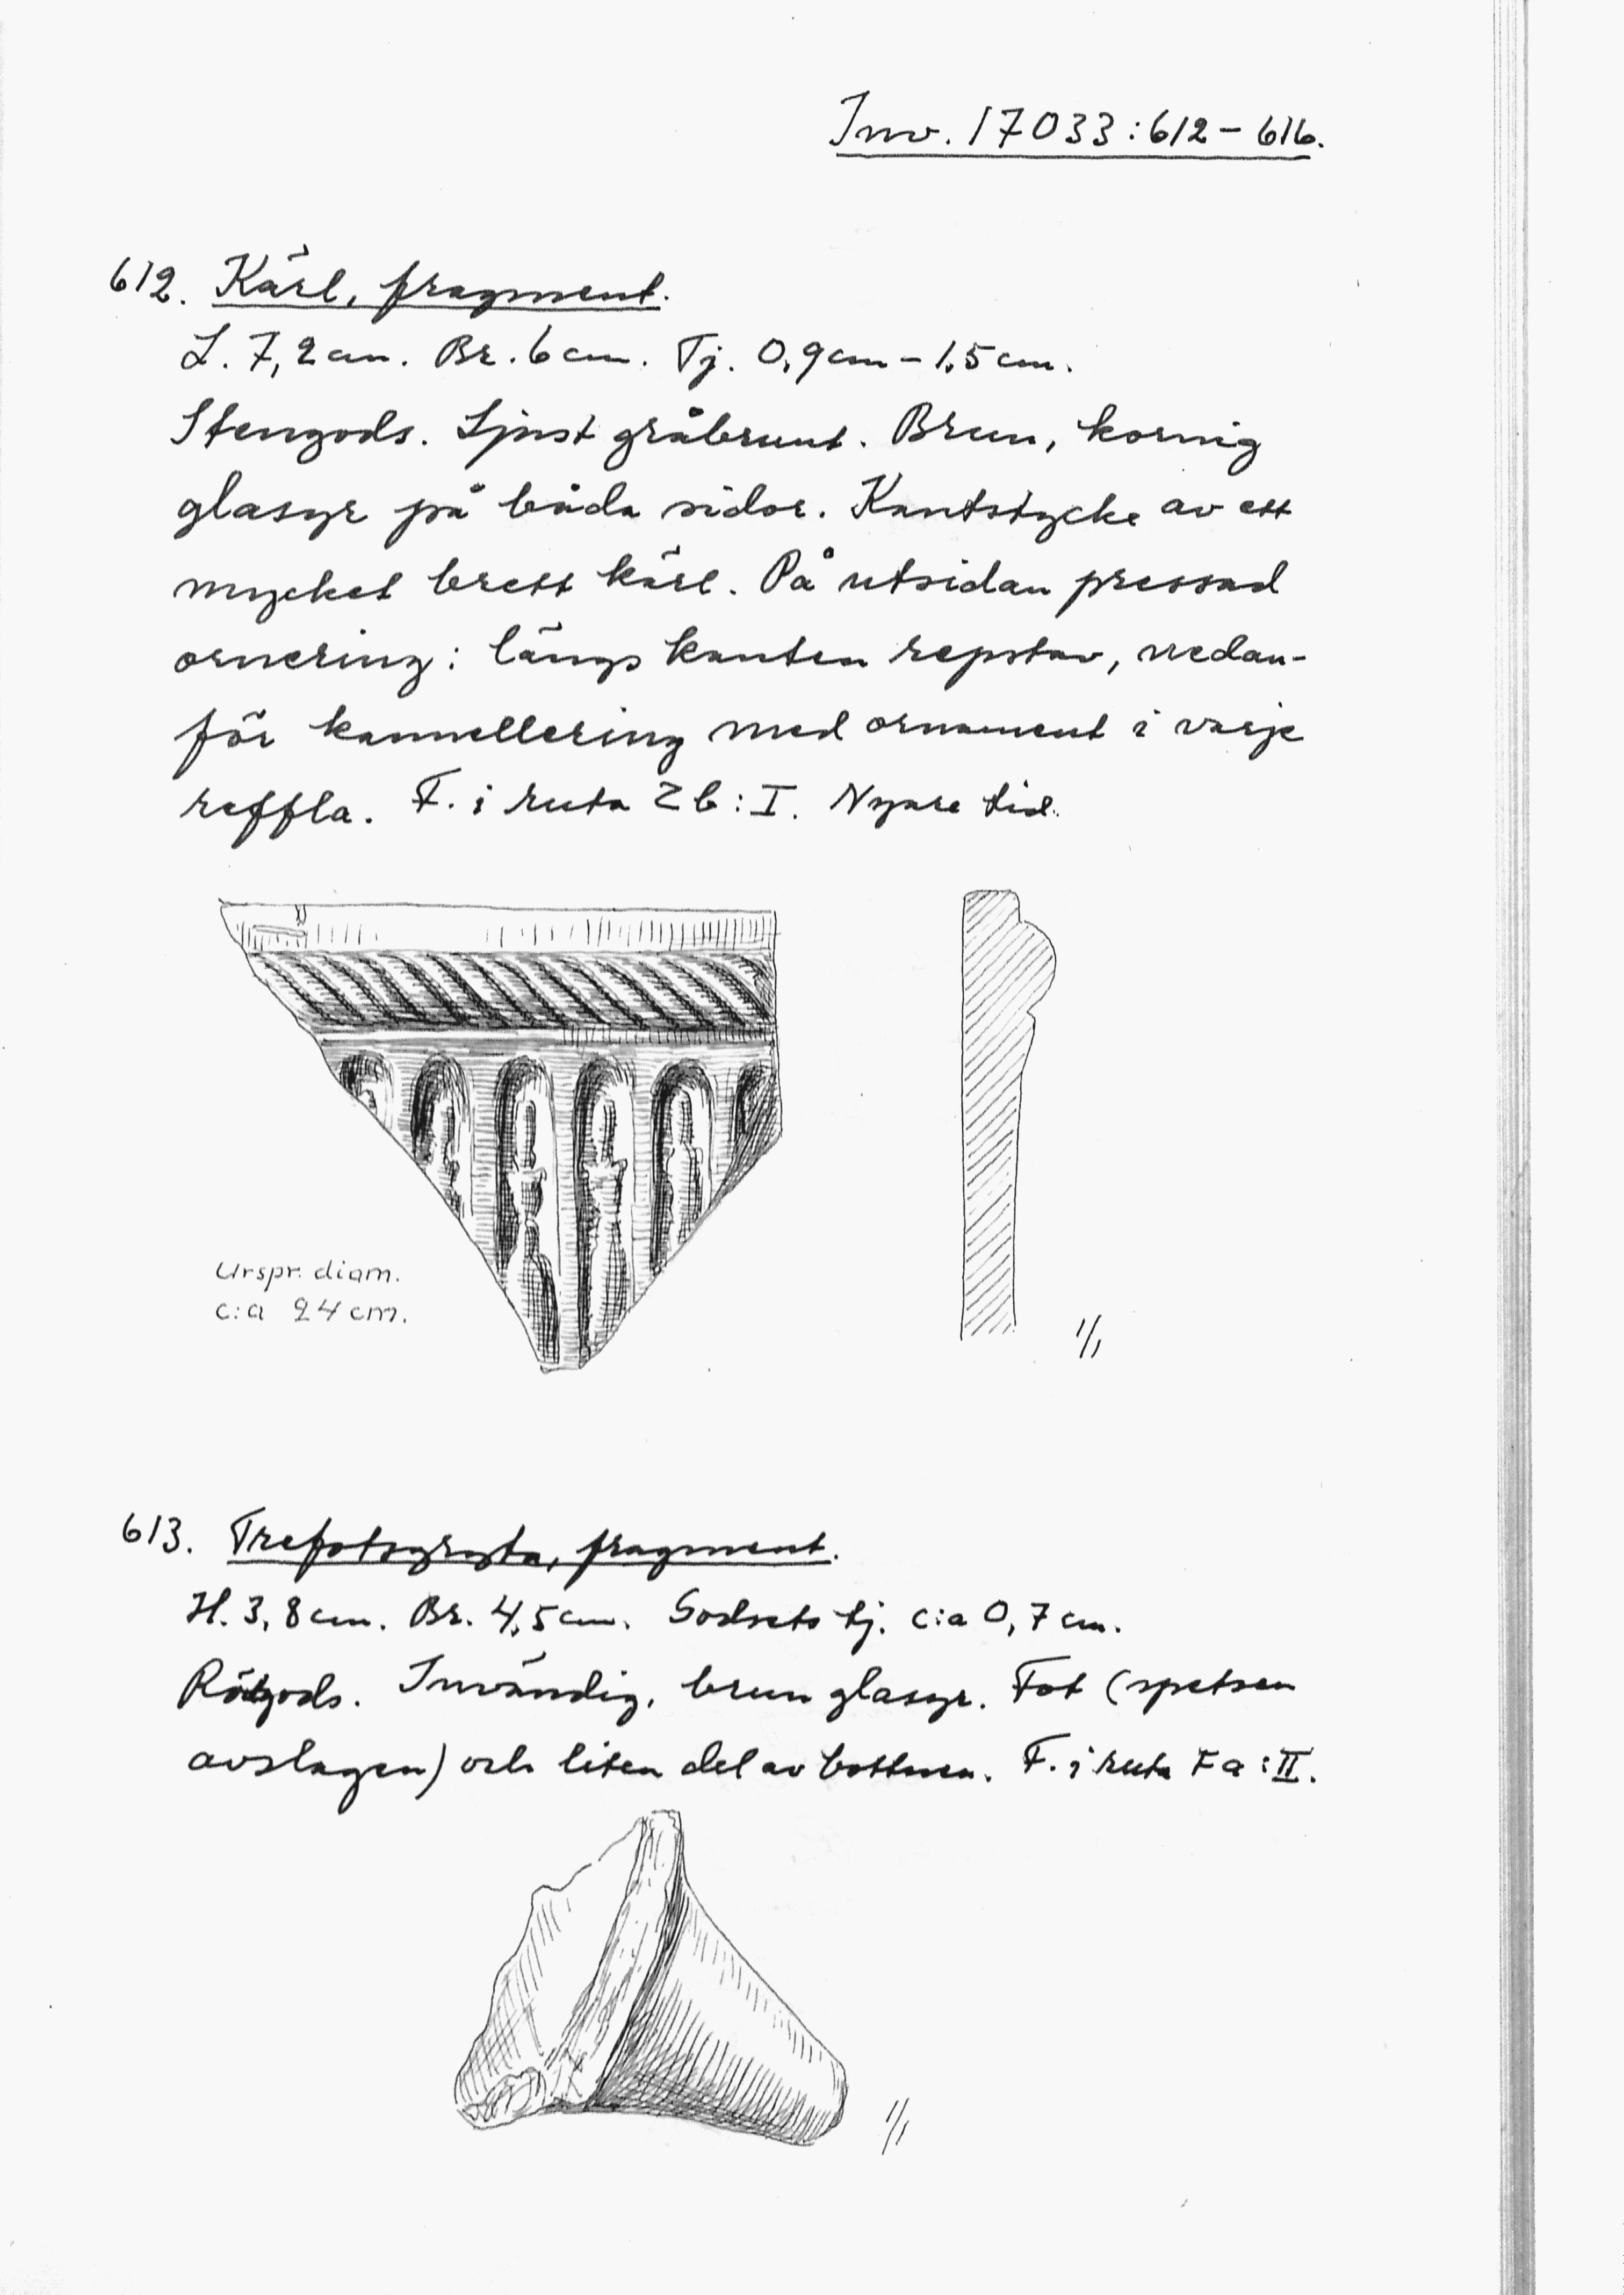 Inv. 17033:612-616.
612. Kärl, fragment.
L. 7,2 cm. Br. 6 cm. Tj. 0,9 cm - 1,5 cm.
Stengods. Ljust gråbrunt. Brun, kornig
glasyr på båda sidor. Kantstycke av ett
mycket brett kärl. På utsidan pressad
ornering: längs kanten repstav, nedan-
för kannellering med ornament i varje
reffla. F. i ruta Zb:I. Nyare tid.
Urspr. diam.
c:a 24 cm.
1/1
613. Trefotsgryta, fragment.
H. 3,8 cm. Br. 4,5 cm. Godsets tj. c:a 0,7 cm.
Rödgods. Invändig, brun glasyr. Fot (spetsen
avslagen) och liten del av bottnen. F. i ruta Fa:II.
1/1